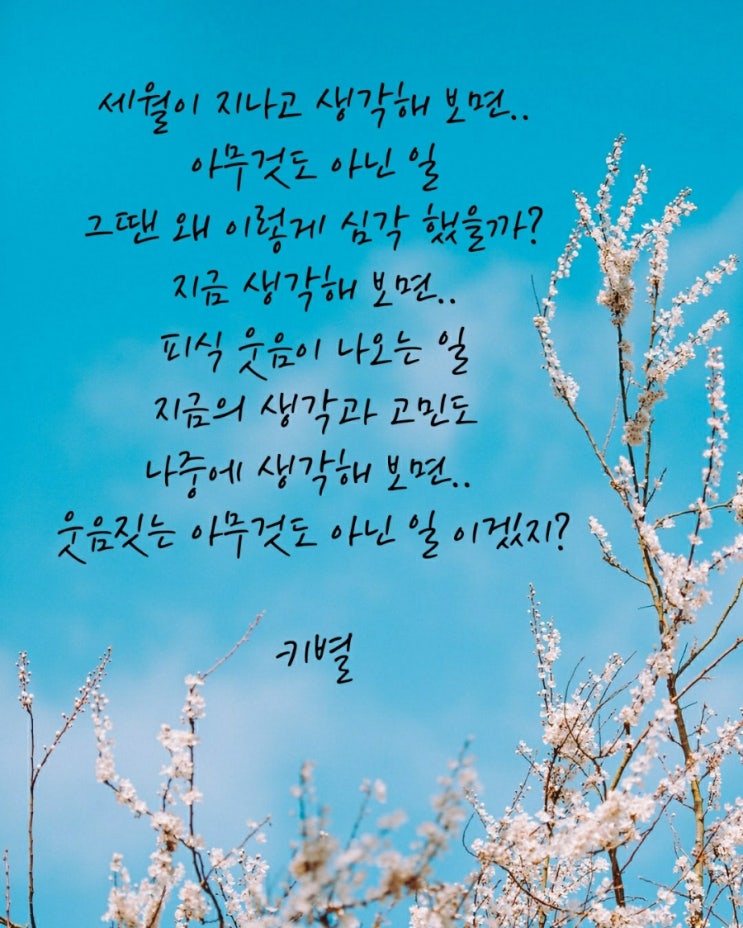 세월이 지나고 생각해 보면..
아무것도 아닌 일
그땐 왜 이렇게 심각 했을까?
지금 생각해 보면..
피식 웃음이 나오는 일
지금의 생각과 고민도
나중에 생각해 보면..
웃음짓는 아무것도 아닌 일 이겠지?
키별